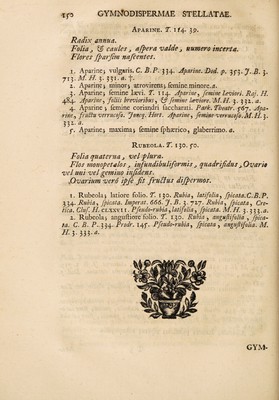 250 GYMNODISPERMAE STELLATAE.
APARINE. T. 114. 39.
Radix annua.
Folia, & caules, aspera valde, numero incerta.
Flores sparsim nascentes.
1. Aparine; vulgaris. C. B. P. 334. Aparine. Dod. p. 353. J. B. 3.
713. M. H. 3. 331. a. 7.
2. Aparine; minor; atrovirens; semine minore. a.
3. Aparine; semine laevi. T. 114. Aparine, semine laeviori. Raj. H.
484. Aparine, foliis brevioribus, & semine laeviore. M. H. 3. 332. a.
4. Aparine; semine coriandri saccharati. Park. Theatr. 567. Apa-
rine, fructu verrucoso. Jonq. Hort. Aparine, semine verrucoso. M. H. 3.
332. a.
5. Aparine; maxima; semine sphaerico; glaberrimo. a.
RUBEOLA. T. 130. 50.
Folia quaterna, vel plura.
Flos monopetalos, infundibuliformis, quadrifidus, Ovario
vel uni vel gemino insidens.
Ovarium verò ipse sit fructus dispermos.
1. Rubeola; latiore folio. T. 130. Rubia, latifolia, spicata. C. B. P.
334. Rubia, spicata. Imperat. 666. J. B. 3. 727. Rubia, spicata, Cre-
tica. Clus. H. CLXXVII. Pseudo-rubia, latifolia, spicata. M. H. 3. 333. a.
2. Rubeola; angustiore folio. T. 130. Rubia, angustifolia, spica-
ta. C. B. P. 334. Prodr. 145. Pseudo-rubia, spicata, angustifolia. M.
H. 3. 333. a.
GYM-